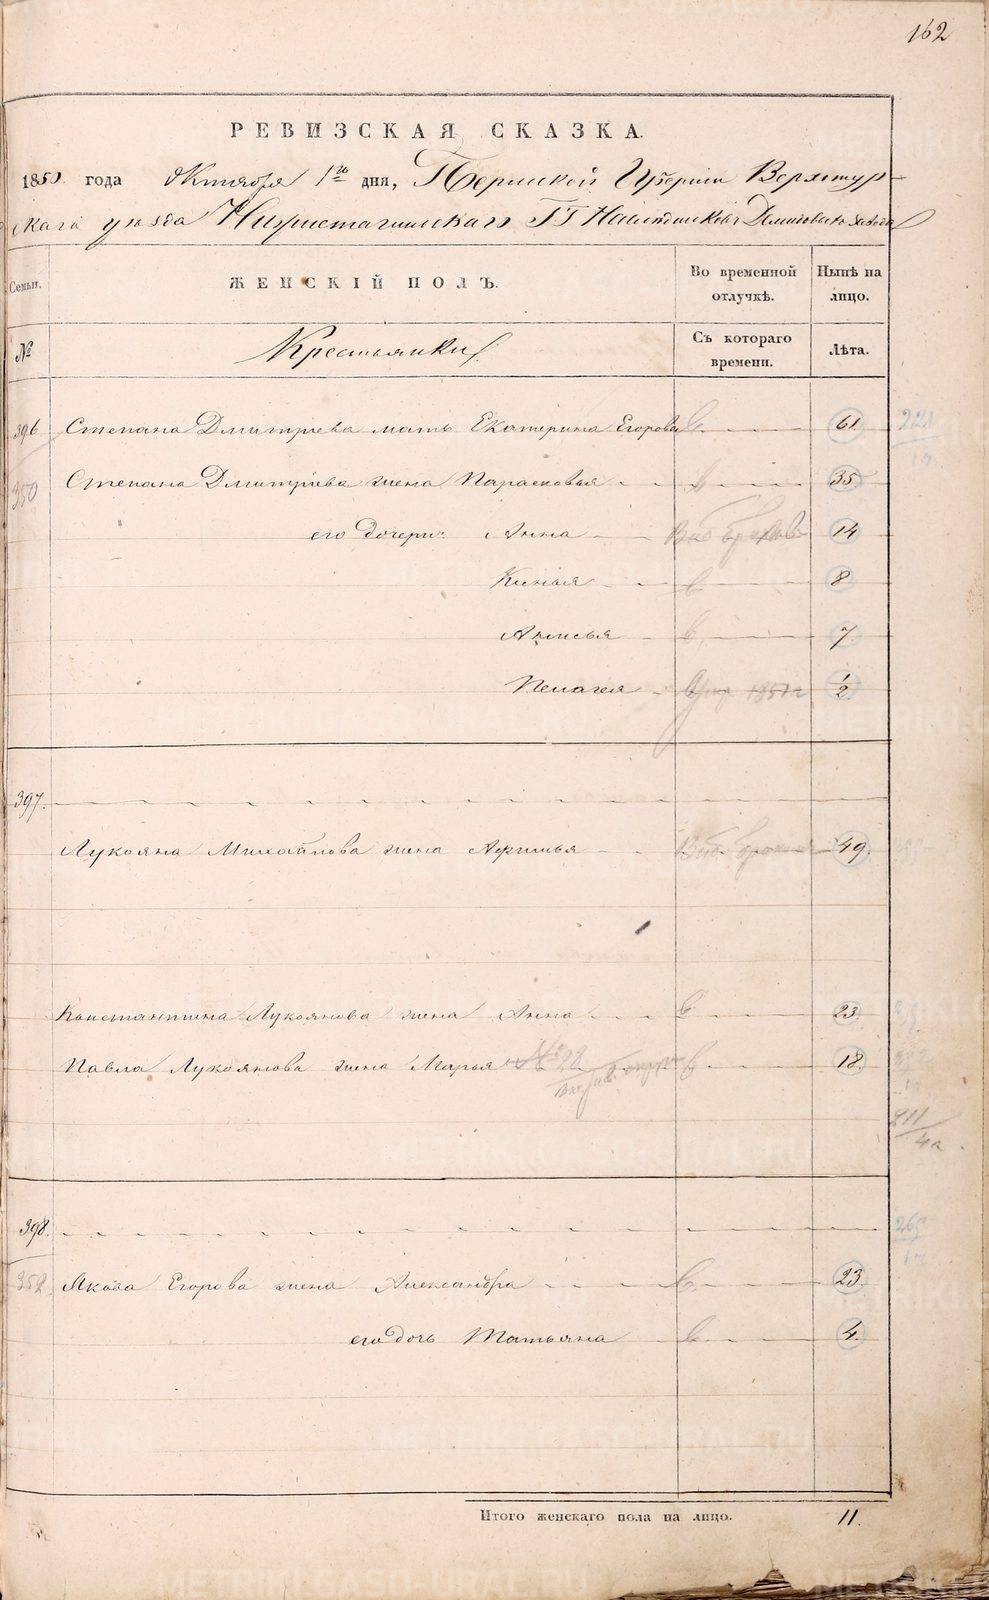 162
РЕВИЗСКАЯ СКАЗКА.
1850 года Октября 1го дня, Пермской Губерніи Верхотур-
скаго уѣзда Нижнетагильскаго ГГ Наслѣдниковъ Демидовыхъ завода
Семьи. ЖЕНСКІЙ ПОЛЪ. Во временной отлучкѣ. Нынѣ на лицо.
№ Крестьянки Съ котораго времени. Лѣта.
396 Степана Дмитріева мать Екатерина Егорова в 61 221
350 Степана Дмитріева жена Парасковья в 35
его дочери: Анна 14
Ксенья в 8
Анисья в 7
Пелагея Умр 1851 г 1/2
397.
Лукояна Михайлова жена Афимья 49.
Константина Лукоянова жена Анна в 23
Павла Лукоянова жена Марья в 18.
211/4а
398. 265
352 Якова Егорова жена Александра в 23
его дочь Татьяна в 4.
Итого женскаго пола на лицо. 11.
METRIKI.GASO-URAL.RU